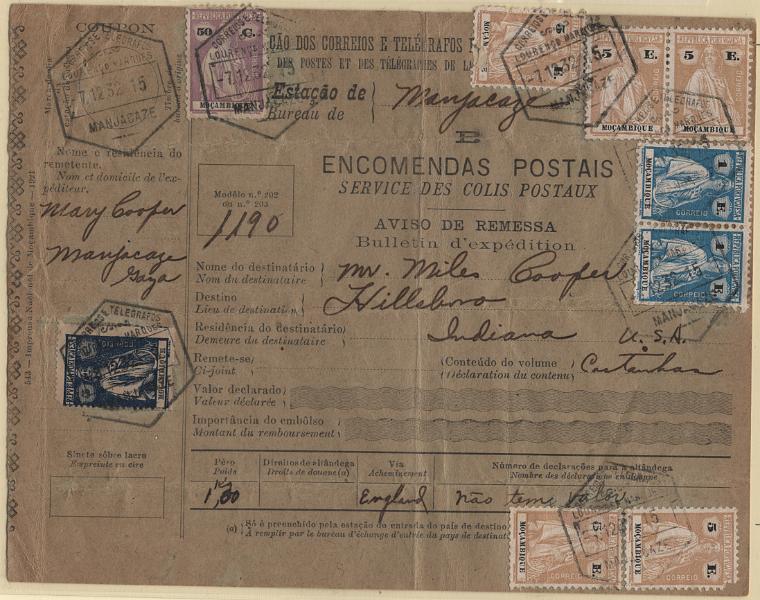 COUPON
50 C.
REPUBLICA PORTUGUESA
MOÇAMBIQUE
CORREIOS E TELEGRAFOS
LOURENÇO MARQUES
7.12.32 15
MANJACAZE
ÇÃO DOS CORREIOS E TELÉGRAFOS
DES POSTES ET DES TÉLÉGRAPHES DE LA
Estação de
Bureau de
Manjacaze
5 E.
MOÇAMBIQUE
5 E.
MOÇAMBIQUE
5
MOÇAMBIQUE
ENCOMENDAS POSTAIS
SERVICE DES COLIS POSTAUX
Nome e residência do
remetente.
Nom et domicile de l'ex-
péditeur.
Mary Cooper
Manjacaze
Gaza
Modêlo n.º 202
ou n.º 203
1190
AVISO DE REMESSA
Bulletin d'expédition
1 E.
MOÇAMBIQUE
CORREIO
1 E.
MOÇAMBIQUE
CORREIO
Nome do destinatário
Nom du destinataire
Mr. Miles Cooper
Destino
Lieu de destination
Hillsboro
Residência do destinatário
Demeure du destinataire
Indiana U.S.A.
Remete-se
Ci-joint
Conteúdo do volume
Déclaration du contenu
Castanhas
Valor declarado
Valeur déclarée
Importância do embôlso
Montant du remboursement
Sinete sôbre lacre
Empreinte en cire
Pêso
Poids
Direitos de alfândega
Droits de douane (a)
Via
Acheminement
Número de declarações para a alfândega
Nombre des déclarations en douane
1,50
England
não tem valor
(a) Só é preenchido pela estação de entrada do país de destino
A remplir par le bureau d'échange d'entrée du pays de destinat
5 E.
MOÇAMBIQUE
CORREIO
5 E.
MOÇAMBIQUE
CORREIO